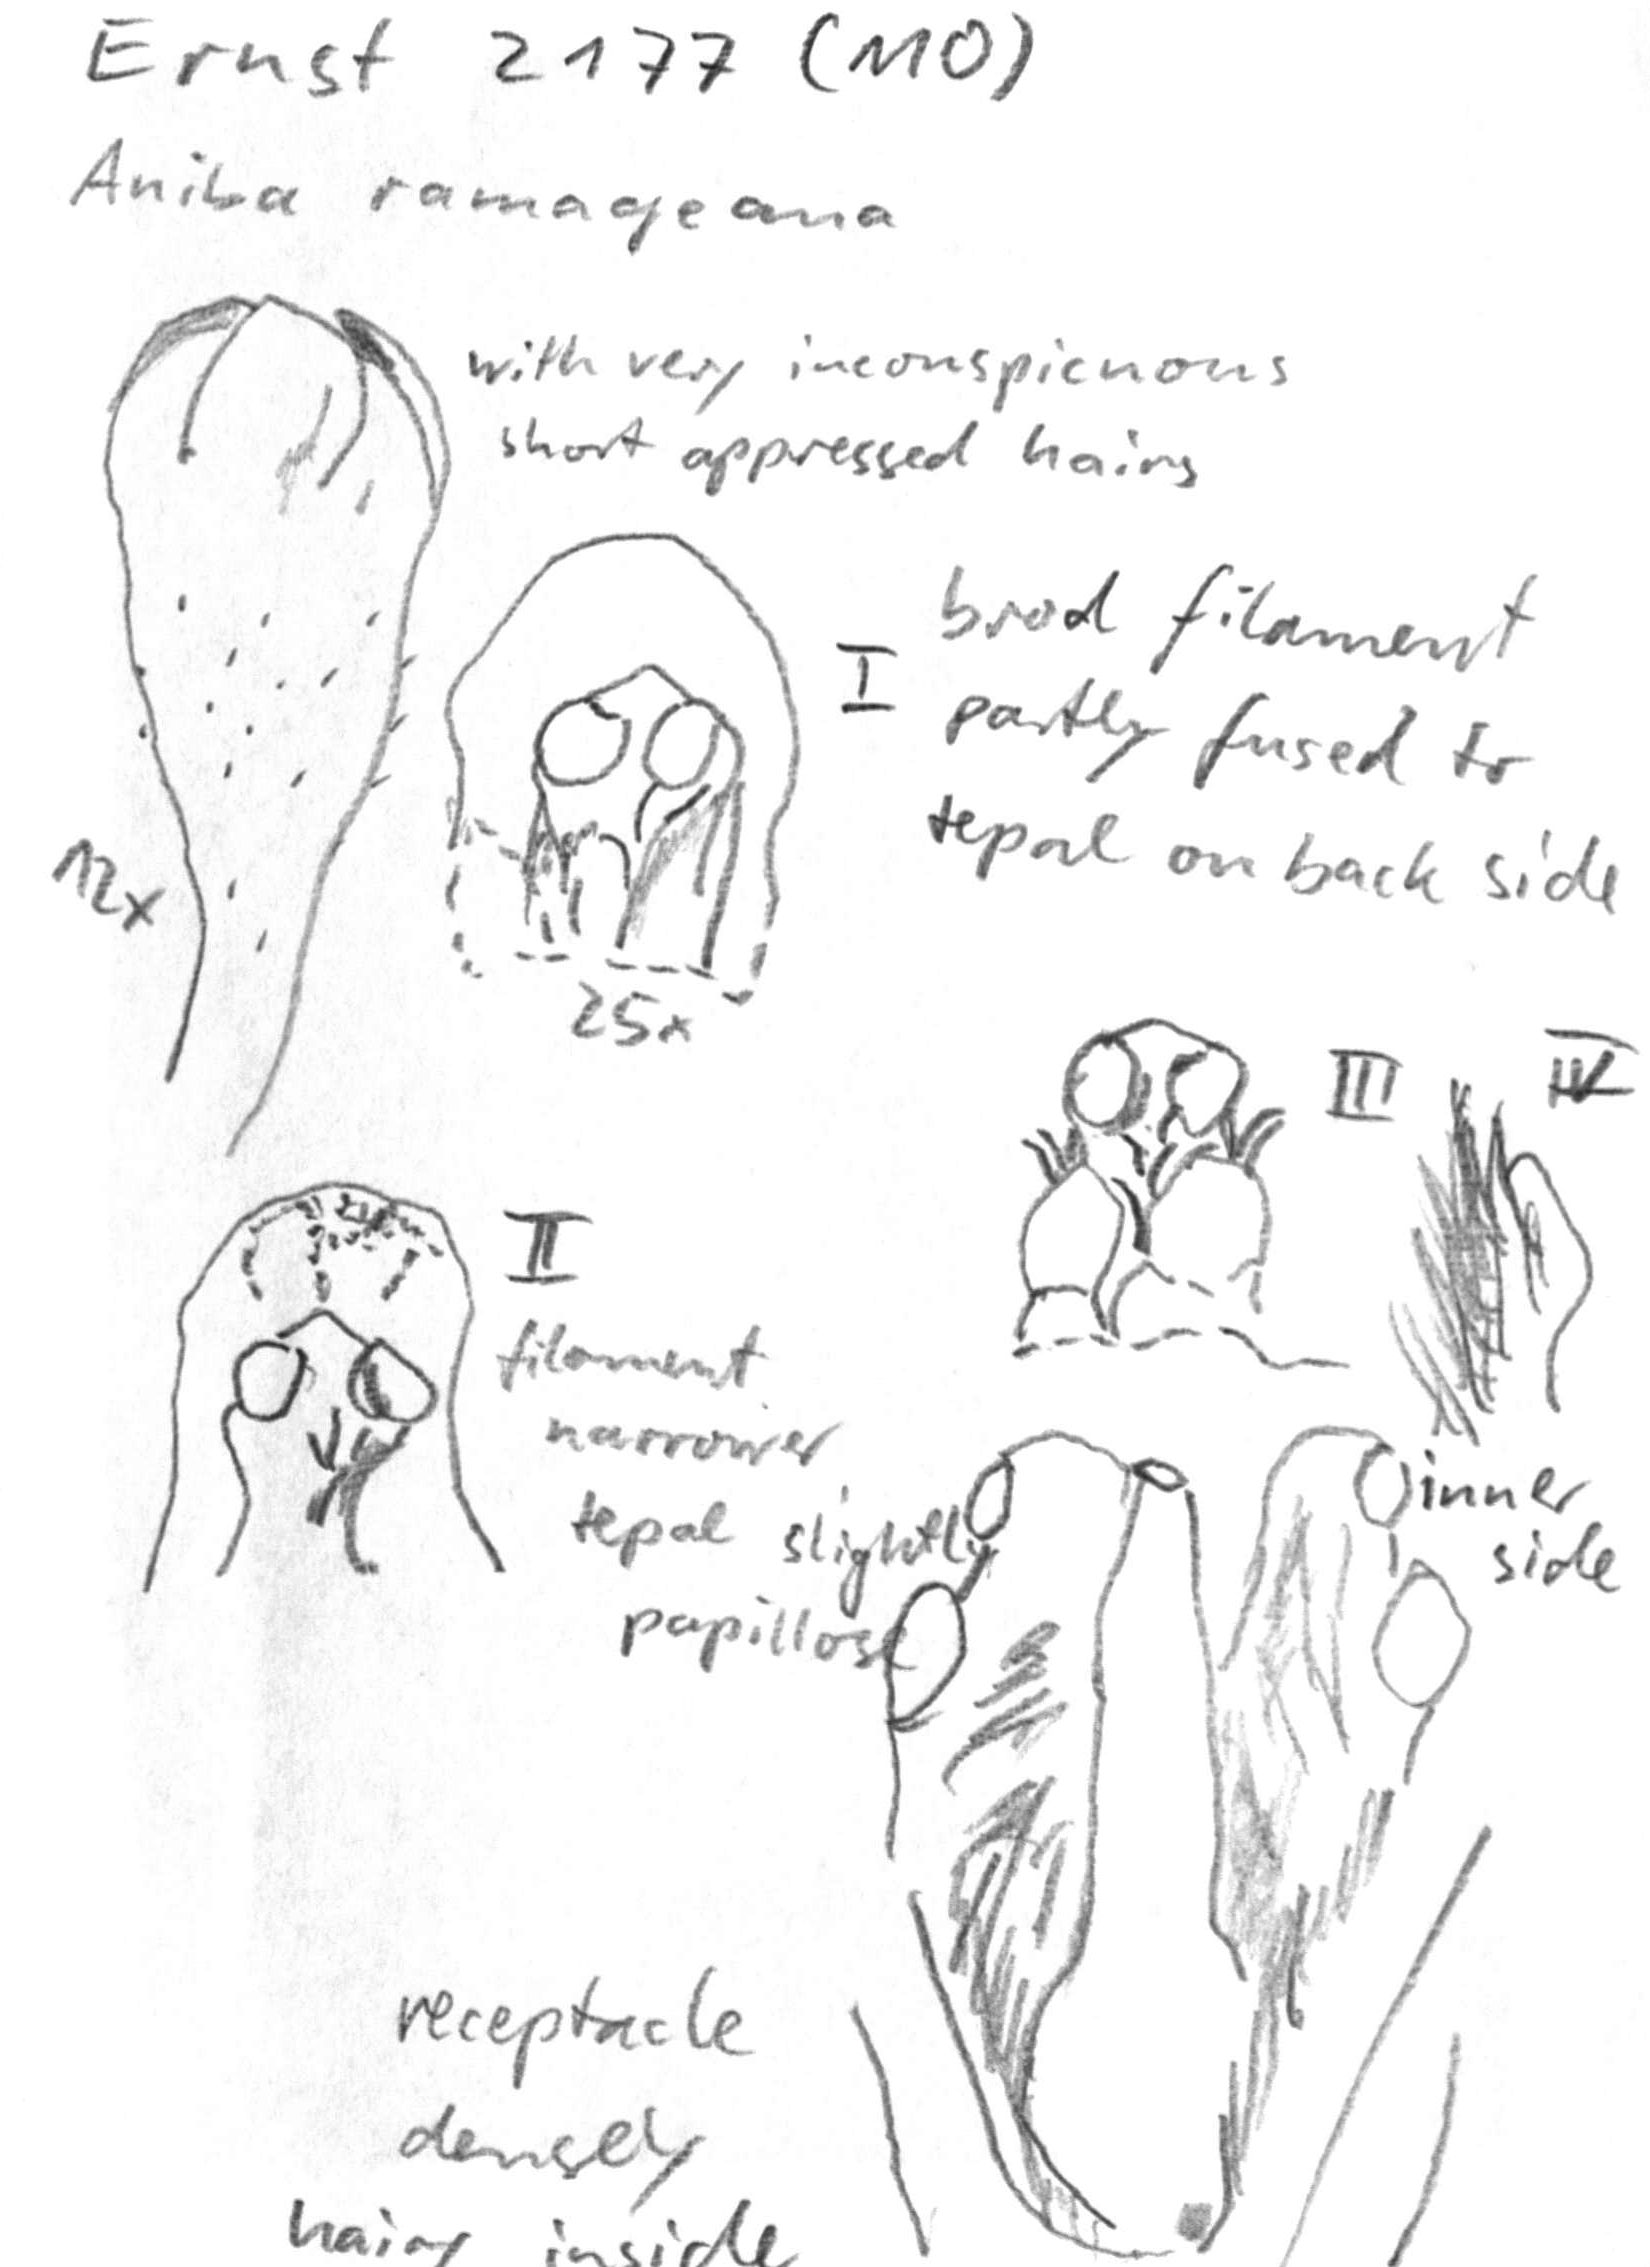 Ernst 2177 (MO)
Aniba ramageana
with very inconspicuous
short appressed hairs
I
brod filament
partly fused to
tepal on back side
12x
25x
III
IV
II
filament
narrower
tepal slightly
papillose
inner
side
receptacle
densely
hairy inside